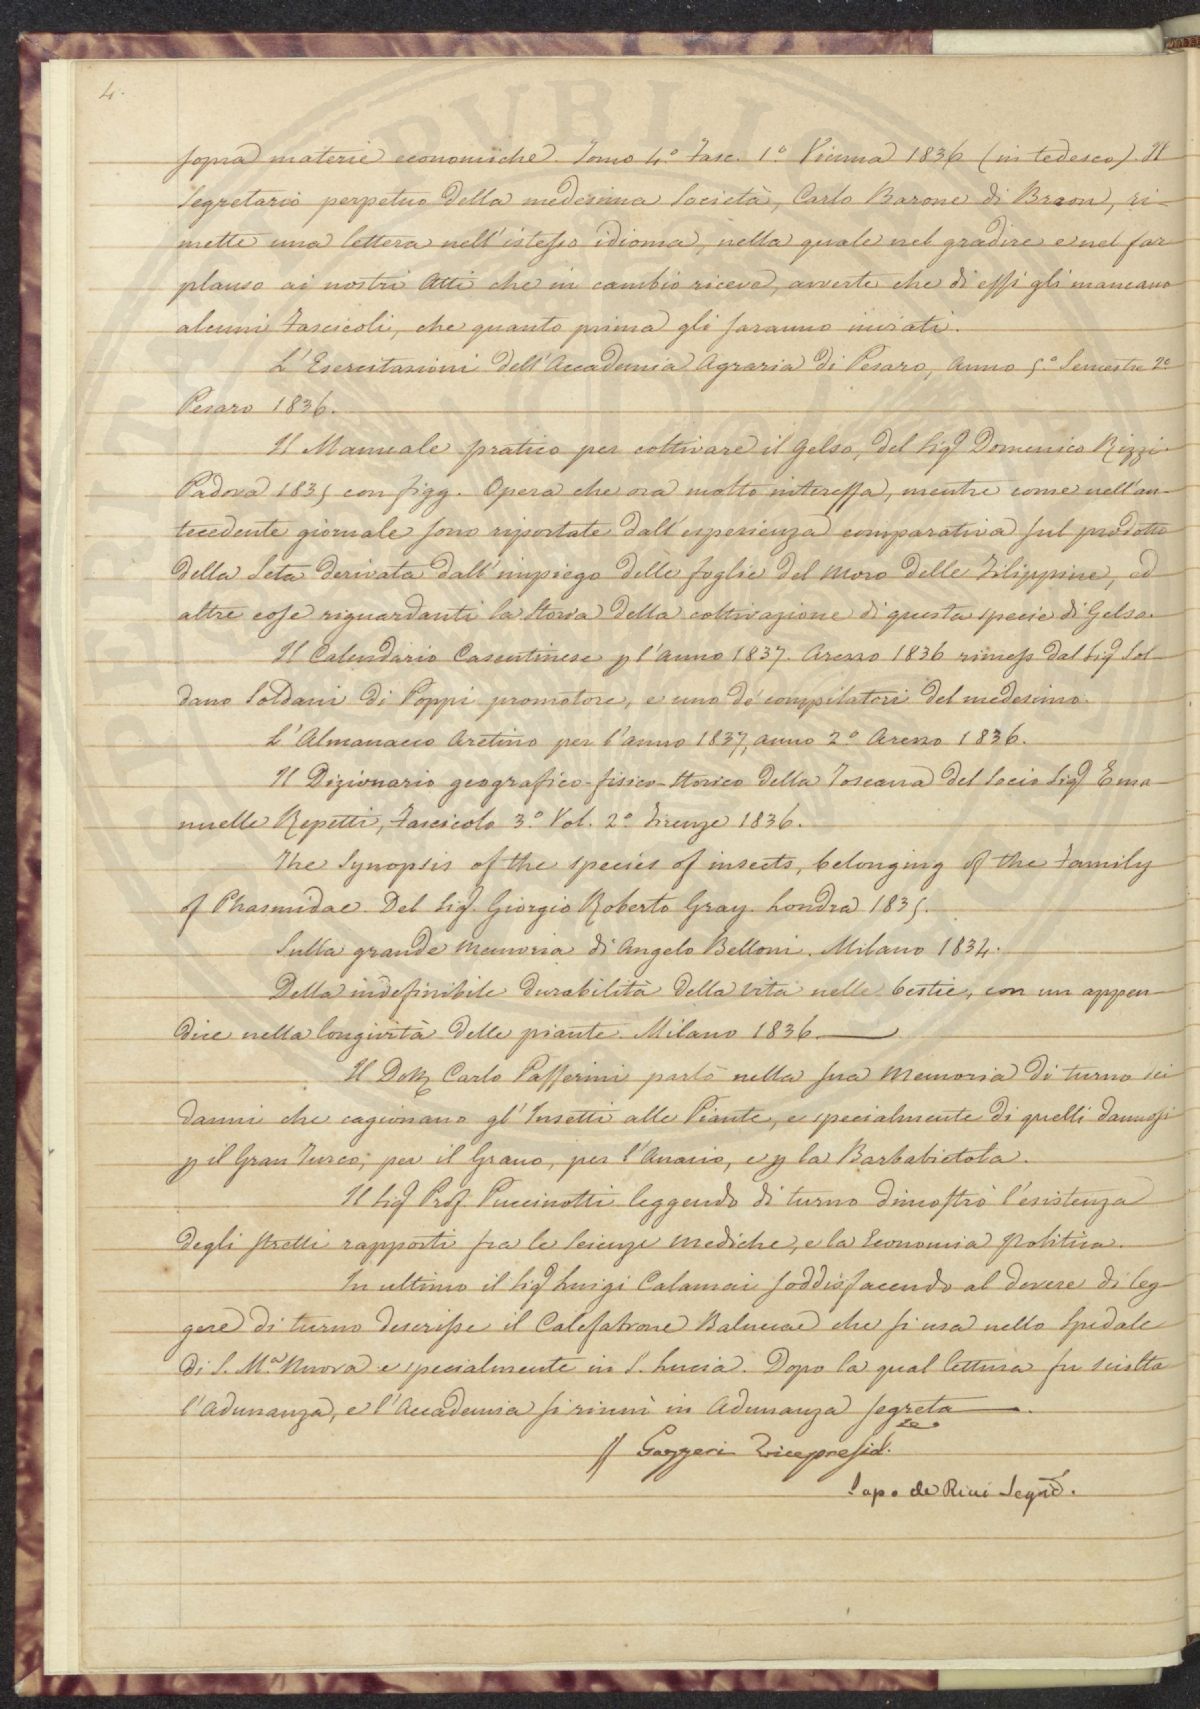 4.
sopra materie economiche. Tomo 4.º Fasc. 1.º Vienna 1836 (in tedesco). Il
Segretario perpetuo della medesima Società, Carlo Barone di Braon, ri-
mette una lettera nell'istesso idioma, nella quale nel gradire e nel far
plauso ai nostri Atti che in cambio riceve, avverte che di essi gli mancano
alcuni Fascicoli, che quanto prima gli saranno inviati.
L'Esercitazioni dell'Accademia Agraria di Pesaro, Anno 5.º Semestre 2º
Pesaro 1836.
Il Manuale pratico per coltivare il Gelso, del Sig.r Domenico Rizzi.
Padova 1835 con figg. Opera che ora molto interessa, mentre come nell'an-
tecedente giornale sono riportate dall'esperienza comparativa sul prodotto
della Seta derivata dall'impiego delle foglie del Moro delle Filippine, ed
altre cose riguardanti la storia della coltivazione di questa specie di Gelso.
Il Calendario Casentinese p l'Anno 1837. Arezzo 1836 rimess dal Sig.r Sol-
dano Soldani di Poppi promotore, e uno de' compilatori del medesimo.
L'Almanacco Aretino per l'anno 1837, anno 2.º Arezzo 1836.
Il Dizionario geografico-fisico-storico della Toscana del Socio Sig.r Ema-
nuelle Repetti, Fascicolo 3.º Vol. 2.º Firenze 1836.
The Synopsis of the species of insects, belonging of the Family
of Phasmidae. Del Sig.r Giorgio Roberto Gray. Londra 1835.
Sulla grande Memoria di Angelo Belloni. Milano 1834.
Della indefinibile durabilità della vita nelle bestie, con un appen-
dice nella longività delle piante. Milano 1836.
Il Dott. Carlo Passerini parlò nella sua Memoria di turno sei
danni che cagionano gl'Insetti alle Piante, e specialmente di quelli dannosi
p il Gran Turco, per il Grano, per l'Anacio, e p la Barbabietola.
Il Sig.r Prof. Puccinotti leggendo di turno dimostrò l'esistenza
degli stretti rapporti fra le Scienze Mediche, e la Economia Politica.
In ultimo il Sig.r Luigi Calamai soddisfacendo al dovere di leg-
gere di turno descrisse il Calefatrone Balneae che si usa nello Spedale
di S. M.a Nuova e specialmente in S. Lucia. Dopo la qual lettura fu sciolta
l'Adunanza, e l'Accademia si riunì in Adunanza segreta.
Gazzeri Vicepresid.te
Lapo de Ricci Segr.io.